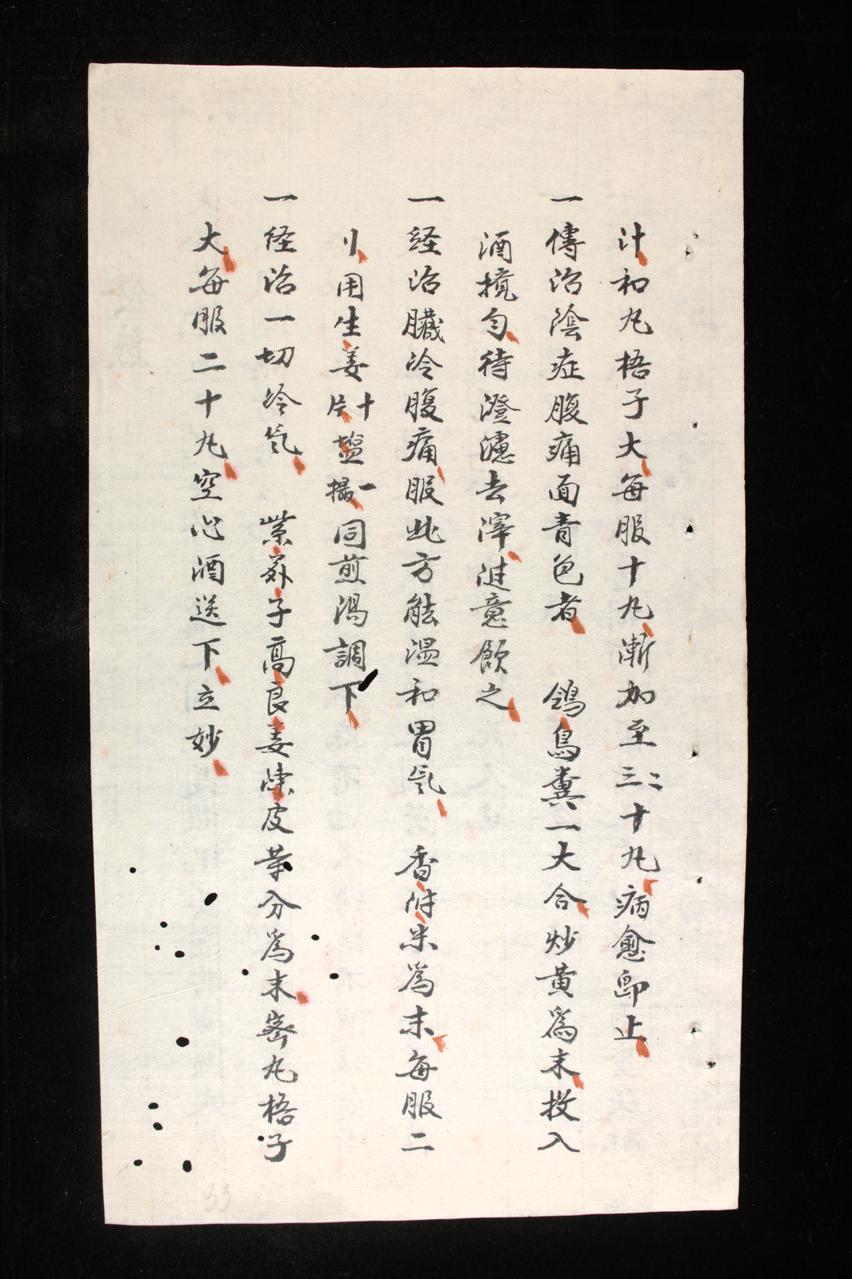 汁和丸梧子大每服十丸漸加至三二十丸病愈即止
一傳治陰症腹痛面青色者 鴿鳥糞一大合炒黄爲末投入
酒攪匀待澄濾去滓隨意飲之
一経治臓冷腹痛服此方能温和胃氣 香附米爲末每服二
刂用生姜十片塩一撮同煎湯調下
一経治一切冷氣 紫蘇子高良姜陳皮䓁分爲末宻丸梧子
大每服二十丸空心酒送下立妙
33